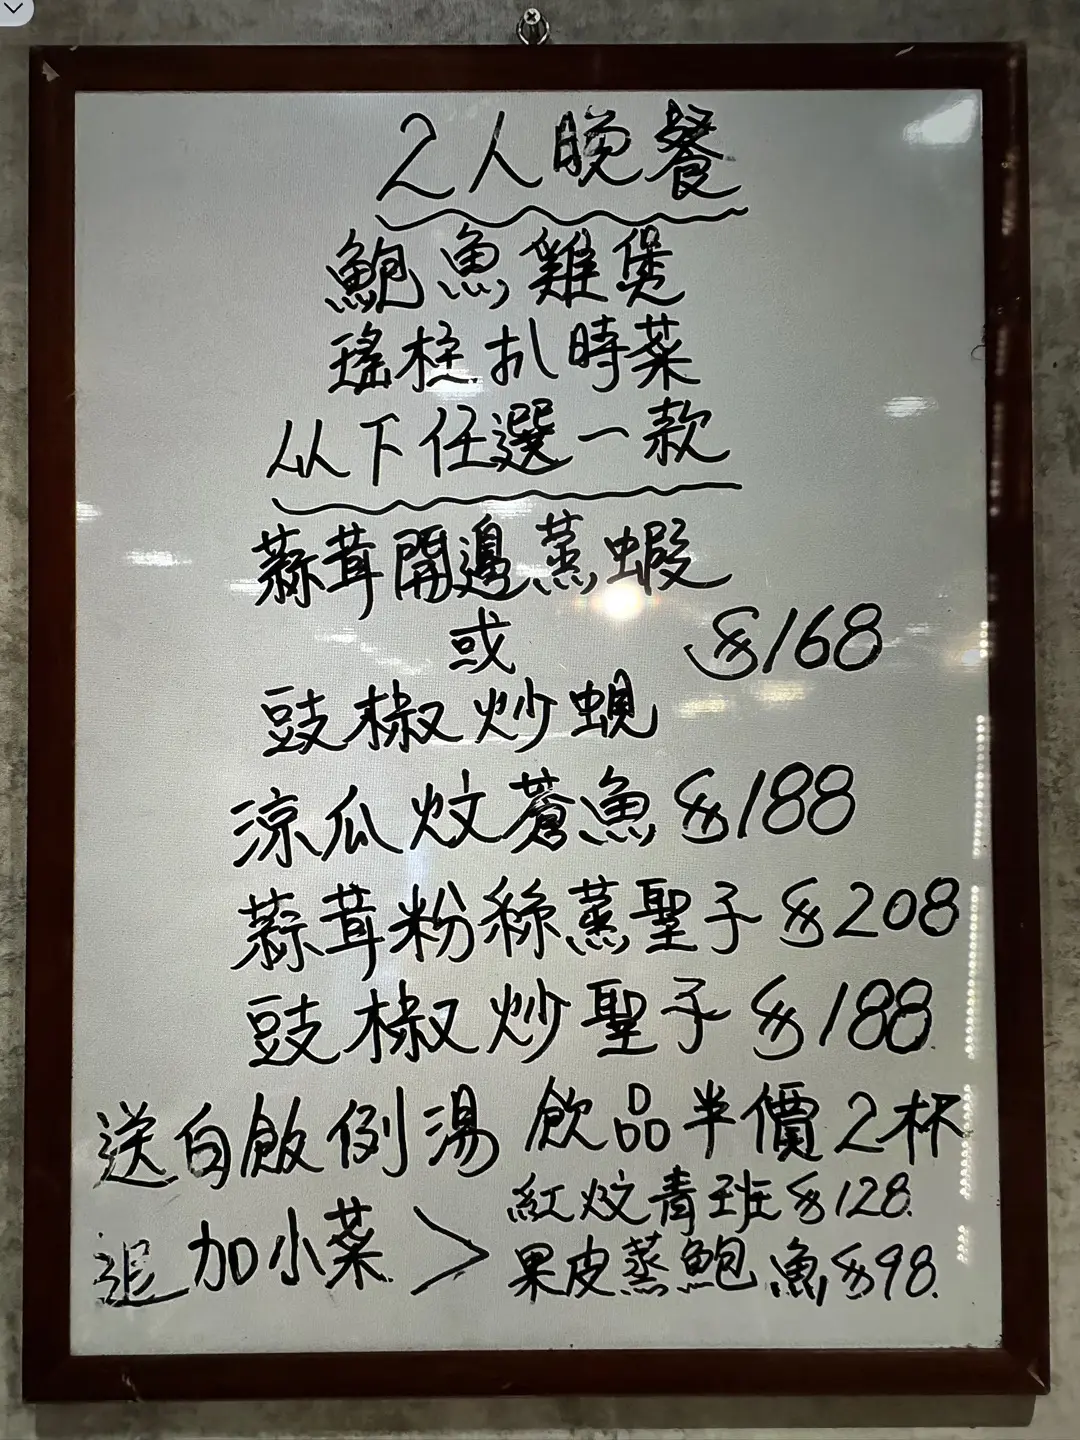 2人晚餐
鮑魚雞煲
瑤柱扒時菜
以下任選一款
蒜茸開邊蒸蝦
或 $168
豉椒炒蜆
涼瓜炆蒼魚 $188
蒜茸粉絲蒸聖子 $208
豉椒炒聖子 $188
送白飯例湯 飲品半價2杯
追加小菜 > 紅炆青班 $128
果皮蒸鮑魚 $98